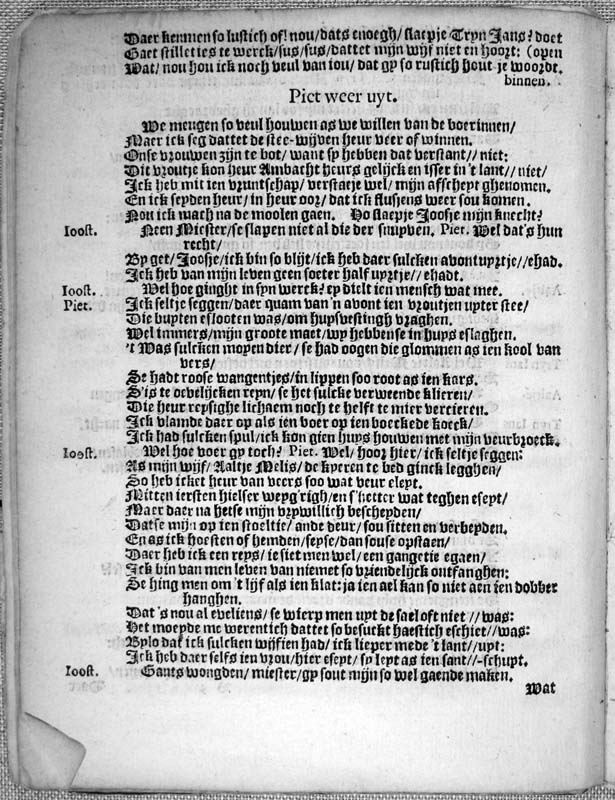 Daer kenmen so lustich of! nou/dats enoegh/ slaepje Tryn Jans? doet
Gaet stilletjes te werck/sus/sus/dattet mijn wijf niet en hoort: (open
Wat/ nou hou ick noch veul van jou/ dat gy so rustich hout je woordt.
binnen.
Piet weer uyt.
We meugen so veul houwen as we willen van de boerinnen/
Maer ick seg dattet de stee-wijven heur veer of winnen.
Onse vrouwen zijn te bot/ want sy hebben dat verstant// niet:
Dit vroutje kon heur Ambacht heurs gelijck en isser in 't lant// niet/
Ick heb mit ien vruntschap/ verstaeje wel/ mijn afscheyt ghenomen.
En ick seyden heur/ in heur oor/ dat ick flusjens weer sou komen.
Nou ick mach na de moolen gaen. Ho slaepje Joosje mijn knecht?
Ioost. Neen Miester/se slapen niet al die der snuyven. Piet. Wel dat's hun
recht/
By get/ Joosje/ick bin so blijt/ick heb daer sulcken avontuyrtje//ehad.
Ick heb van mijn leven geen soeter half uyrtje// ehadt.
Ioost. Wel hoe ginght in syn werck? ey dielt ien mensch wat mee.
Piet. Ick seltje seggen/ daer quam van'n avont ien vroutjen uyter stee/
Die buyten eslooten was/om huysvestingh vraghen.
Wel immers/mijn groote maet/wy hebbense in huys eslaghen.
't Was sulcken moyen dier/ se had oogen die glommen as ien kool van
vers/
Se hadt roose wangentjes/in lippen soo root as ien kars.
S'is te oevelijcken reyn/ se het sulcke verweende klieren/
Die heur reysighe lichaem noch te helft te mier vercieren.
Ick vlamde daer op als ien voer op ien boeckede koeck/
Ick had sulcken spul/ick kon gien huys houwen met mijn veurbroeck.
Ioost. Wel hoe voer gy toch? Piet. Wel/ hoor hier/ ick seltje seggen:
As mijn wijf/ Aaltje Melis/ de kyeren te bed ginck legghen/
So heb icket heur van veers soo wat veur eleyt.
Mitten iersten hielser weyg'righ/en s'hetter wat teghen eseyt/
Maer daer na hetse mijn vrywillich bescheyden/
Datse mijn op ien stoeltje/ ande deur/ sou sitten en verbeyden.
En as ick hoesten of hemden/seyse/dan souse opstaen/
Daer heb ick een reys/ je siet men wel/ een gangetje egaen/
Ick bin van men leven van niemet so vriendelijck ontfanghen:
Se hing men om 't lijf als ien klat: ja ien ael kan so niet aen ien dobber
hanghen.
Dat's nou al eveliens/ se wierp men uyt de sael oft niet // was:
Het moeyde me werentich dattet so besuckt haestich eschiet//was:
Bylo dat ick sulcken wijfien had/ ick lieper mede 't lant//uyt:
Ick heb daer selfs ien vrou/hier eseyt/ sy leyt as ien sant//-schuyt.
Ioost. Gants wongden/ miester/gy sout mijn so wel gaende maken.
Wat